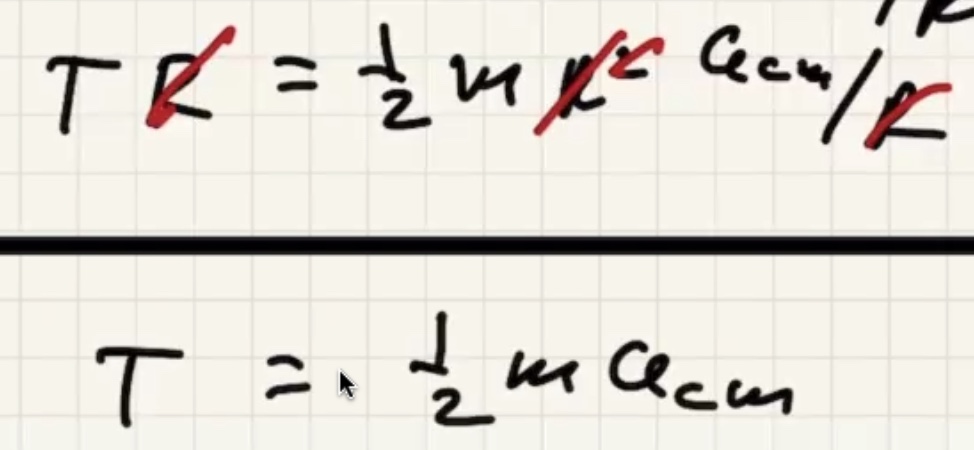 T R = 1/2 m R² a_cm / R
T = 1/2 m a_cm